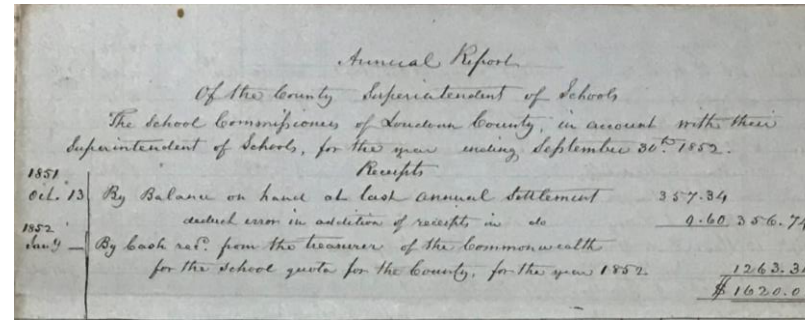 Annual Report
Of the County Superintendent of Schools
The School Commissioners of Loudoun County, in account with their
Superintendent of Schools, for the year ending September 30th 1852.
Receipts
1851
Oct. 13 By Balance on hand at last annual Settlement 357.34
deduct error in addition of receipts in do 0.60 356.74
1852
Jany — By Cash recd. from the treasurer of the Commonwealth
for the school quota for the County, for the year 1852. 1263.34
$ 1620.0